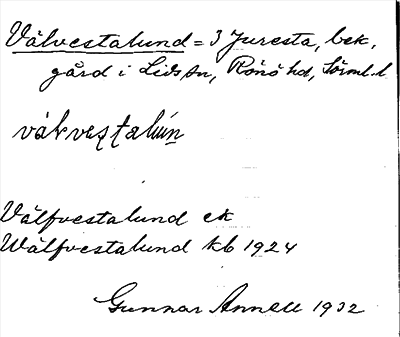 Välvestalund = 3 Juresta, bek.
gård i Lids sn, Rönö hd, Sörml. l
välvestalun
Välfvestalund ek
Wälfvestalund kb 1924
Gunnar Annell 1932